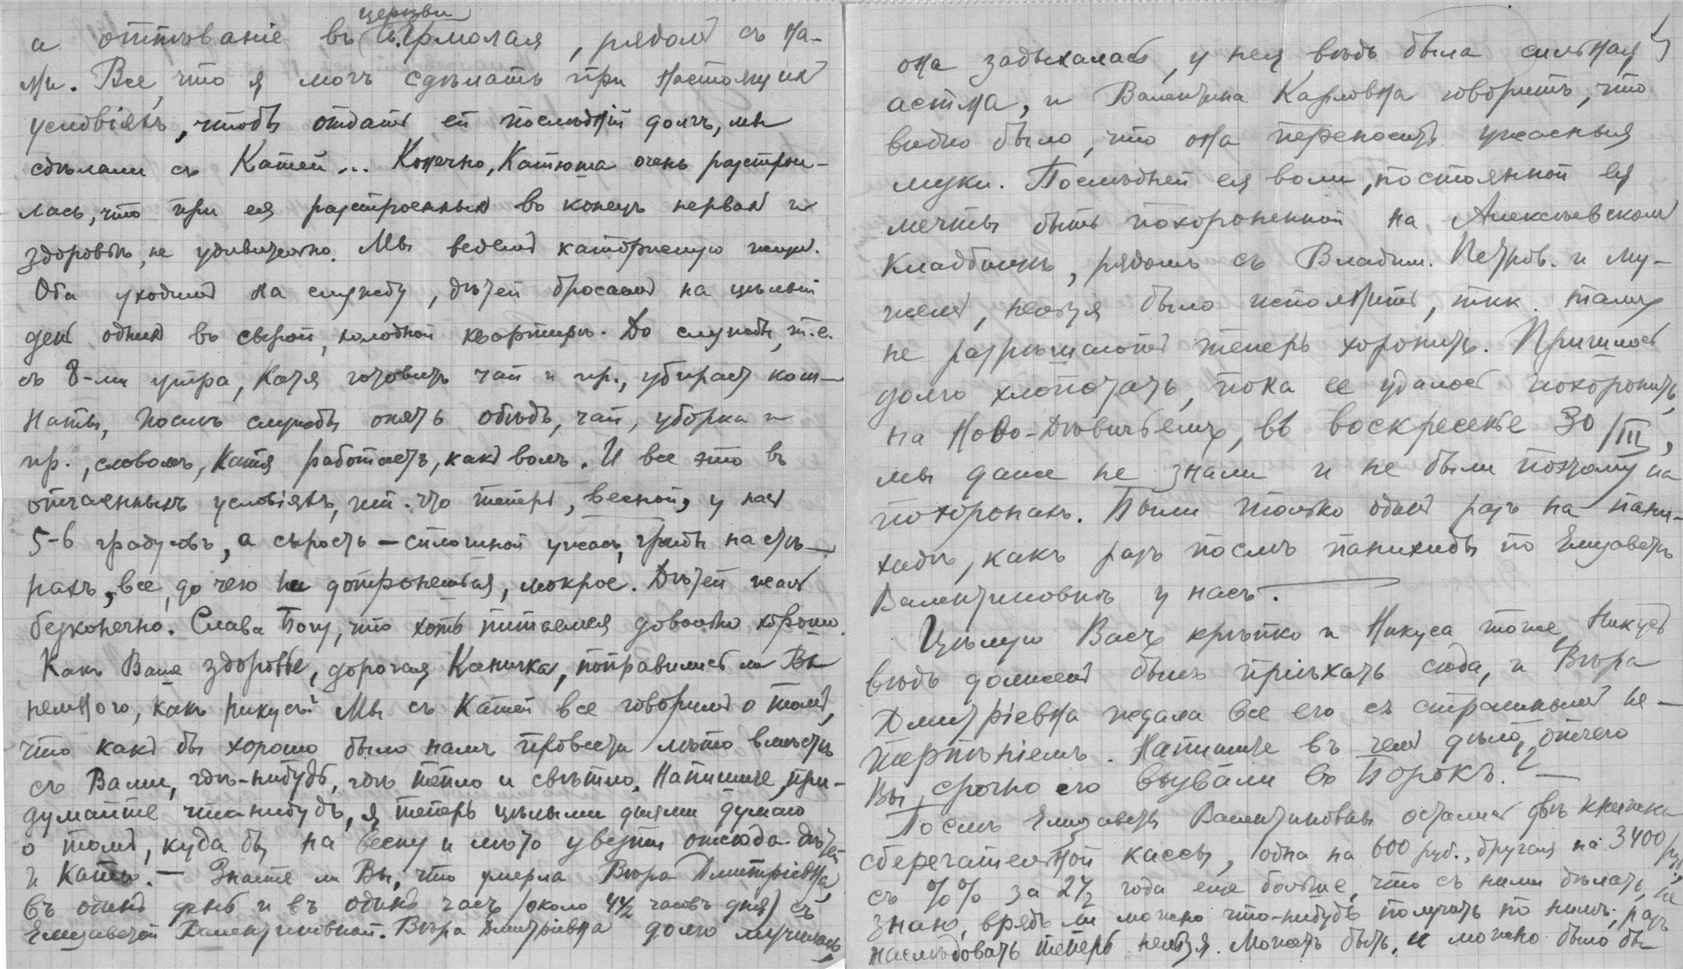 церкви
а отпѣваніе въ Ермолая, рядомъ съ на-
ми. Все, что я могъ сдѣлать при настоящихъ
условіяхъ, чтобы отдать ей послѣдній долгъ, мы
сдѣлали съ Катей... Конечно, Катюша очень разстрои-
лась, что при ея разстроенныхъ въ конецъ нервахъ и
здоровьѣ, не удивительно. Мы ведемъ каторжную жизнь.
Оба уходимъ на службу, дѣтей бросаемъ на цѣлый
день однихъ въ сырой, холодной квартирѣ. До службы, т.е.
съ 8-ми утра, Катя готовитъ чай и пр., убираетъ ком-
наты, послѣ службы опять обѣдъ, чай, уборка и
пр., словомъ, Катя работаетъ, какъ волъ. И все это въ
отчаянныхъ условіяхъ, т.к. что теперь, весной, у насъ
5-6 градусовъ, а сырость – сплошной ужасъ, грибы на стѣ-
нахъ, все, до чего ни дотронешься, мокрое. Дѣтей жаль
безконечно. Слава Богу, что хоть питаемся довольно хорошо.
Какъ Ваше здоровье, дорогая Каничка, поправились ли Вы
немного, какъ Никусъ? Мы съ Катей все говоримъ о томъ,
что какъ бы хорошо было намъ провести лѣто вмѣстѣ
съ Вами, гдѣ-нибудь, гдѣ тепло и свѣтло. Напишите, при-
думайте что-нибудь, я теперь цѣлыми днями думаю
о томъ, куда бы на весну и лѣто увезти отсюда дѣтей
и Катю. – Знаете ли Вы, что умерла Вѣра Дмитріевна,
въ одинъ день и въ одинъ часъ (около 4½ часовъ дня) съ
Елизаветой Валентиновной. Вѣра Дмитріевна долго мучилась,
она задыхалась, у нея вѣдь была сильная
астма, и Валентина Карловна говоритъ, что
видно было, что она переноситъ ужасныя
муки. Послѣдней ея воли, постоянной ея
мечты быть похороненной на Алексѣевскомъ
кладбищѣ, рядомъ съ Владим. Петров. и му-
жемъ, нельзя было исполнить, т.к. тамъ
не разрѣшаютъ теперь хоронить. Пришлось
долго хлопотать, пока ее удалось похоронить
на Ново-Дѣвичьемъ, въ воскресенье 30/III,
мы даже не знали и не были поэтому на
похоронахъ. Были только одинъ разъ на пани-
хидѣ, какъ разъ послѣ панихиды по Елизаветѣ
Валентиновнѣ у насъ.
Цѣлую Васъ крѣпко и Никуса тоже, Никусъ
вѣдь долженъ былъ пріѣхать сюда, и Вѣра
Дмитріевна ждала все его съ страшнымъ не-
терпѣніемъ. Напишите въ чемъ дѣло, отчего
Вы срочно его вызвали въ Борокъ? –
Послѣ Елизаветы Валентиновны остались двѣ книжки
сберегательной кассы, одна на 600 руб., другая на 3400 руб.,
съ %% за 2½ года еще больше, что съ ними дѣлать, не
знаю, врядъ ли можно что-нибудь получить по нимъ, разъ
наслѣдовать теперь нельзя. Можетъ быть, и можно было бы